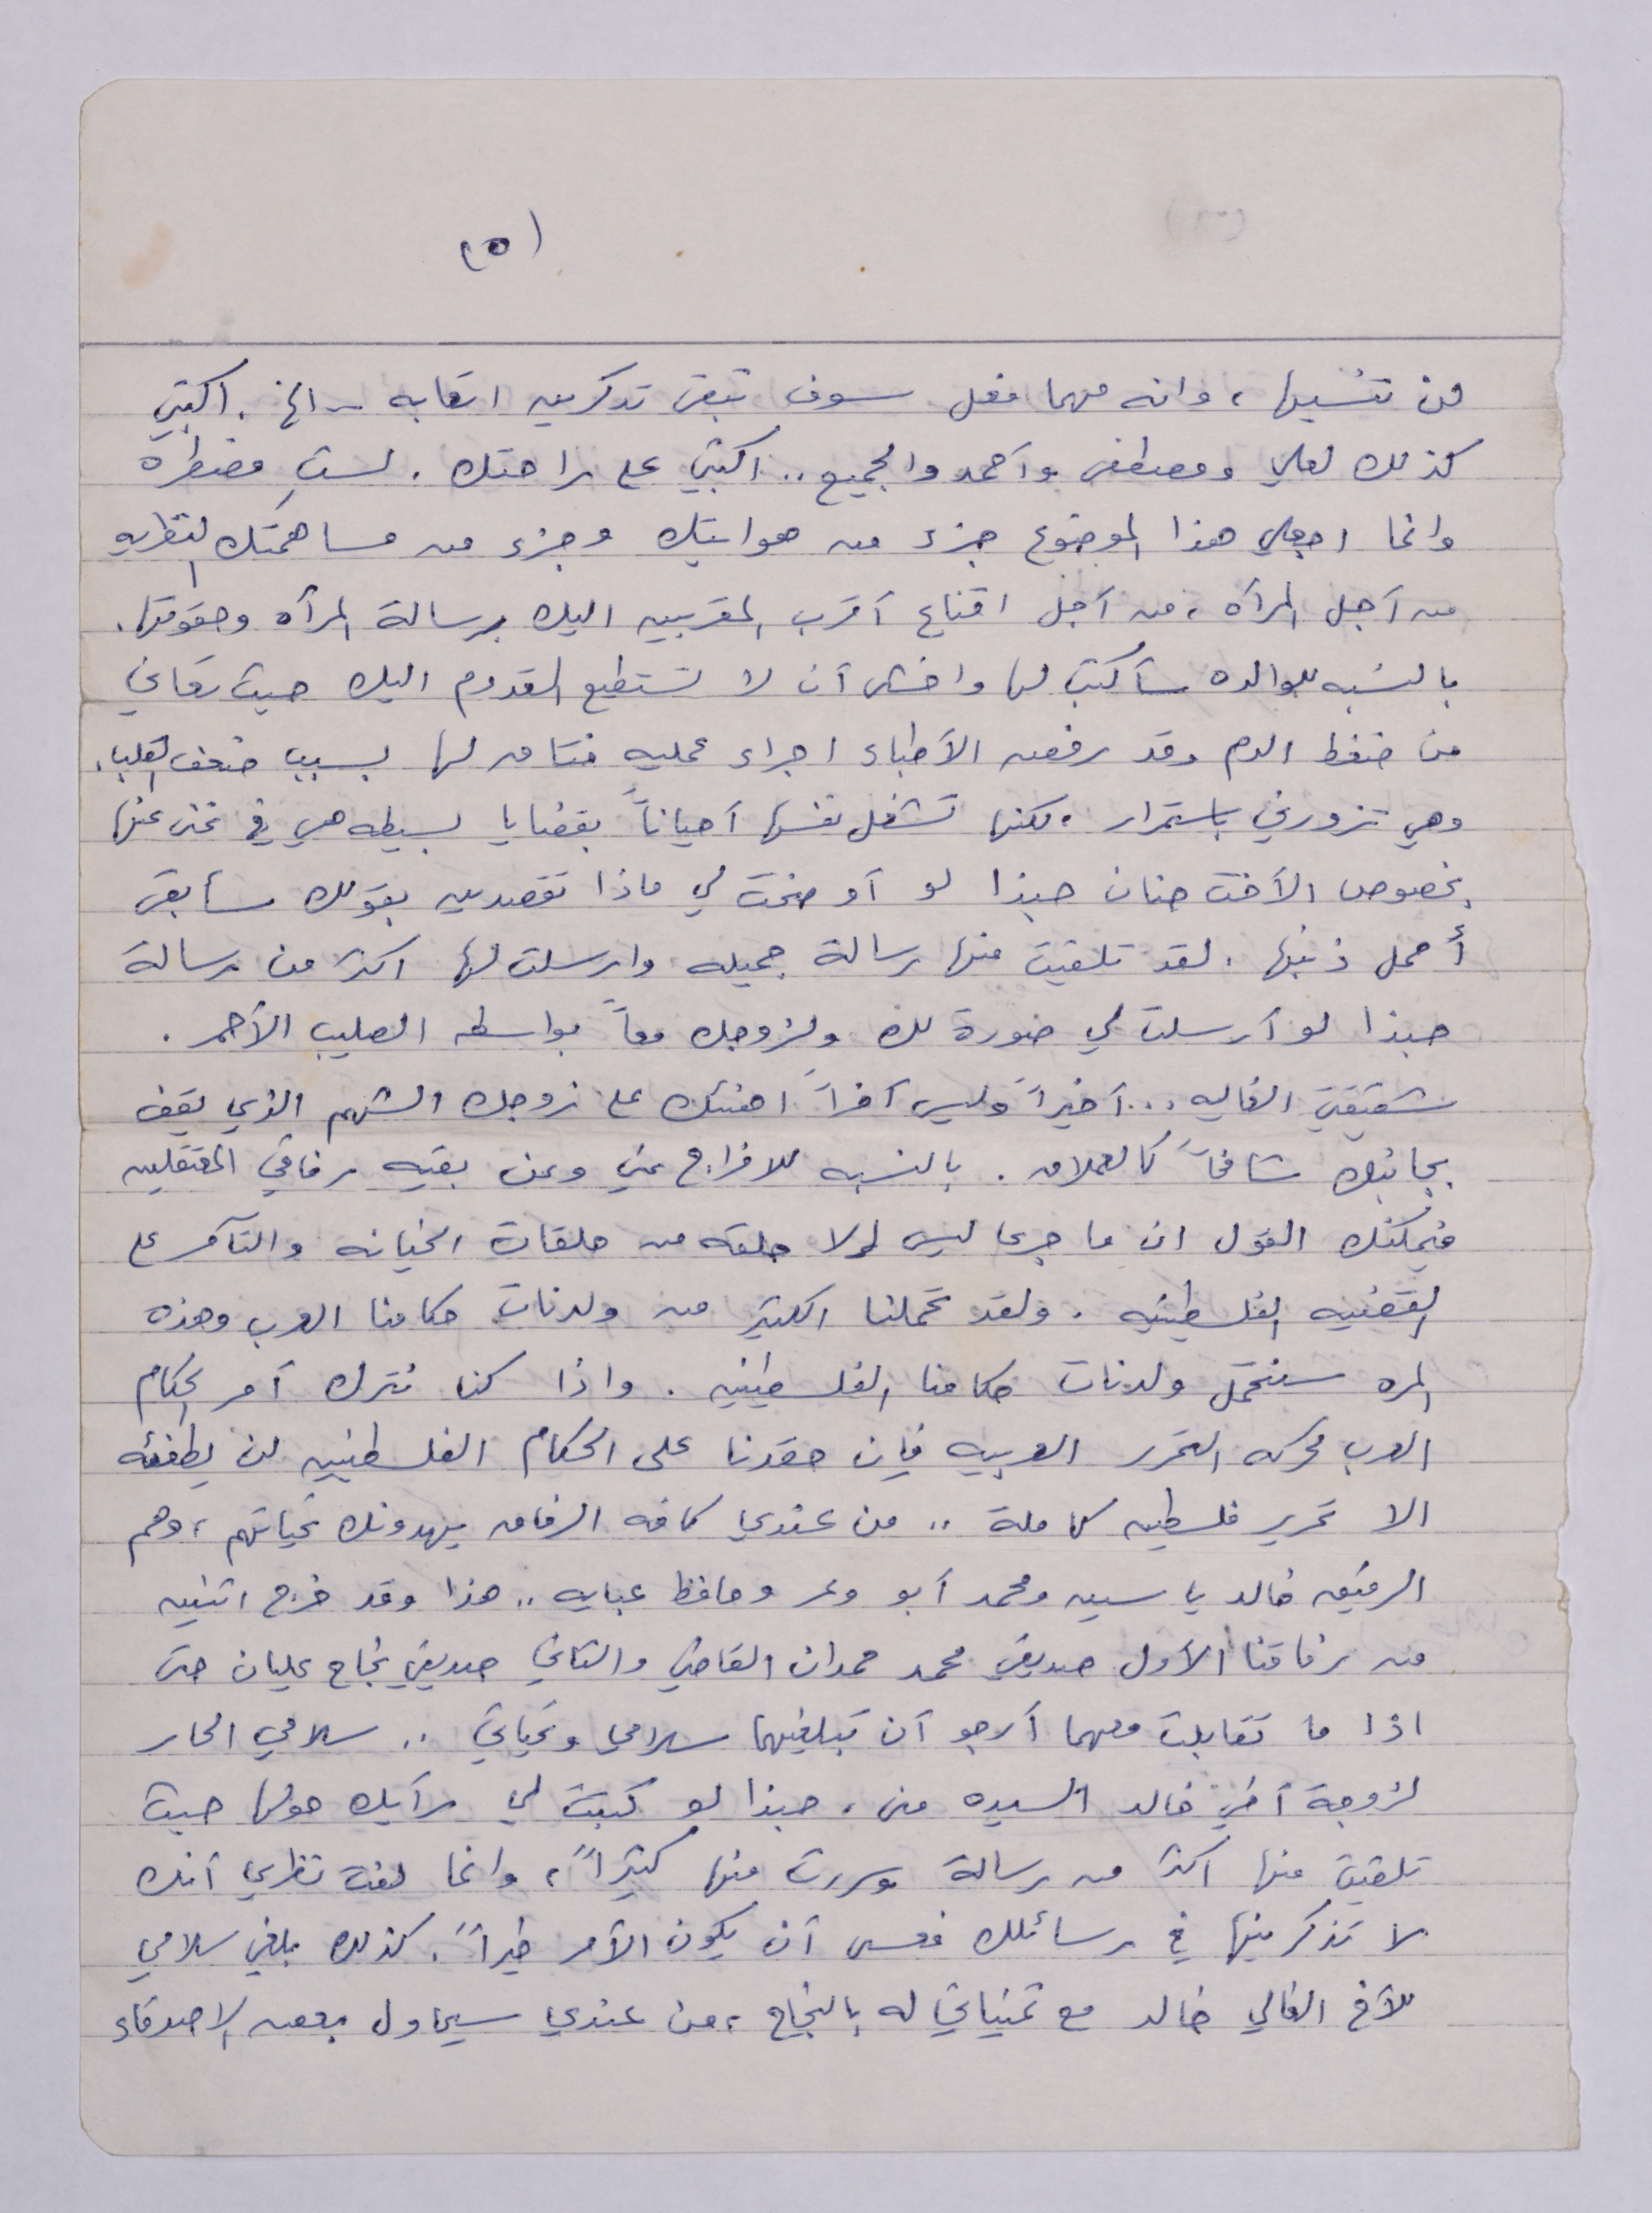 (٥)
من تنسيها، وانه مهما فعل سوف تبقى تذكرين اتعابه - الخ. اكتبي
كذلك لعلي ومصطفى وأحمد والجميع.. اكتبي على راحتك. لستِ مضطره
وانما اجعلي هذا الموضوع جزء من هوايتك وجزء من مساهمتك النظريه
من أجل المرأه، من أجل اقناع أقرب المقربين اليك برسالة المرأه وحقوقها.
بالنسبه للوالده سأكتب لها واخشى أن لا تستطيع القدوم اليك حيث تعاني
من ضغط الدم وقد رفض الأطباء اجراء عمليه فتاق لها بسبب ضعف القلب.
وهي تزورني باستمرار، لكنها تشغل نفسها أحياناً بقضايا بسيطه هي في غنى عنها
بخصوص الأخت حنان حبذا لو أوضحت لي ماذا تقصدين بقولك سأبقى
أحمل ذنبها. لقد تلقيت منها رسالة جميله وارسلت لها اكثر من رسالة
حبذا لو أرسلت لي صورة لك ولزوجك معاً بواسطه الصليب الأحمر.
شقيقتي الغاليه... أخيراً وليس آخراً اهنئك على زوجك الشهم الذي يقف
بجانبك شامخاً كالعملاق. بالنسبه للافراج عني وعن بقيه رفاقي المعتقلين
فيمكنك القول ان ما جرى ليس الا حلقه من حلقات الخيانه والتآمر على
القضيه الفلسطينيه. ولقد تحملنا الكثير من ولدنات حكامنا العرب وهذه
المره سنتحمل ولدنات حكامنا الفلسطينين. واذا كنا نترك أمر الحكام
العرب لحركه التحرر العربيه فإن حقدنا على الحكام الفلسطنيين لن يطفئه
الا تحرير فلسطين كاملة.. من عندي كافه الرفاق يهدونك تحياتهم، وهم
الرفيق خالد ياسين ومحمد أبو وعر وحافظ عبايه.. هذا وقد خرج اثنين
من رفاقنا الأول صديقي محمد حمدان القاضي والثاني صديقي نجاح عليان حتى
اذا ما تقابلت معهما أرجو أن تبلغيهما سلامي وتحياتي.. سلامي الحار
لزوجة أخي خالد السيده منى، حبذا لو كتبت لي رأيك حولها حيث
تلقيت منها اكثر من رسالة وسررت منها كثيراً، وانما لفت نظري أنك
لا تذكرينها في رسائلك فعسى أن يكون الأمر خيراً. كذلك بلغي سلامي
للأخ الغالي خالد مع تمنياتي له بالنجاح، من عندي سيحاول بعض الاصدقاء